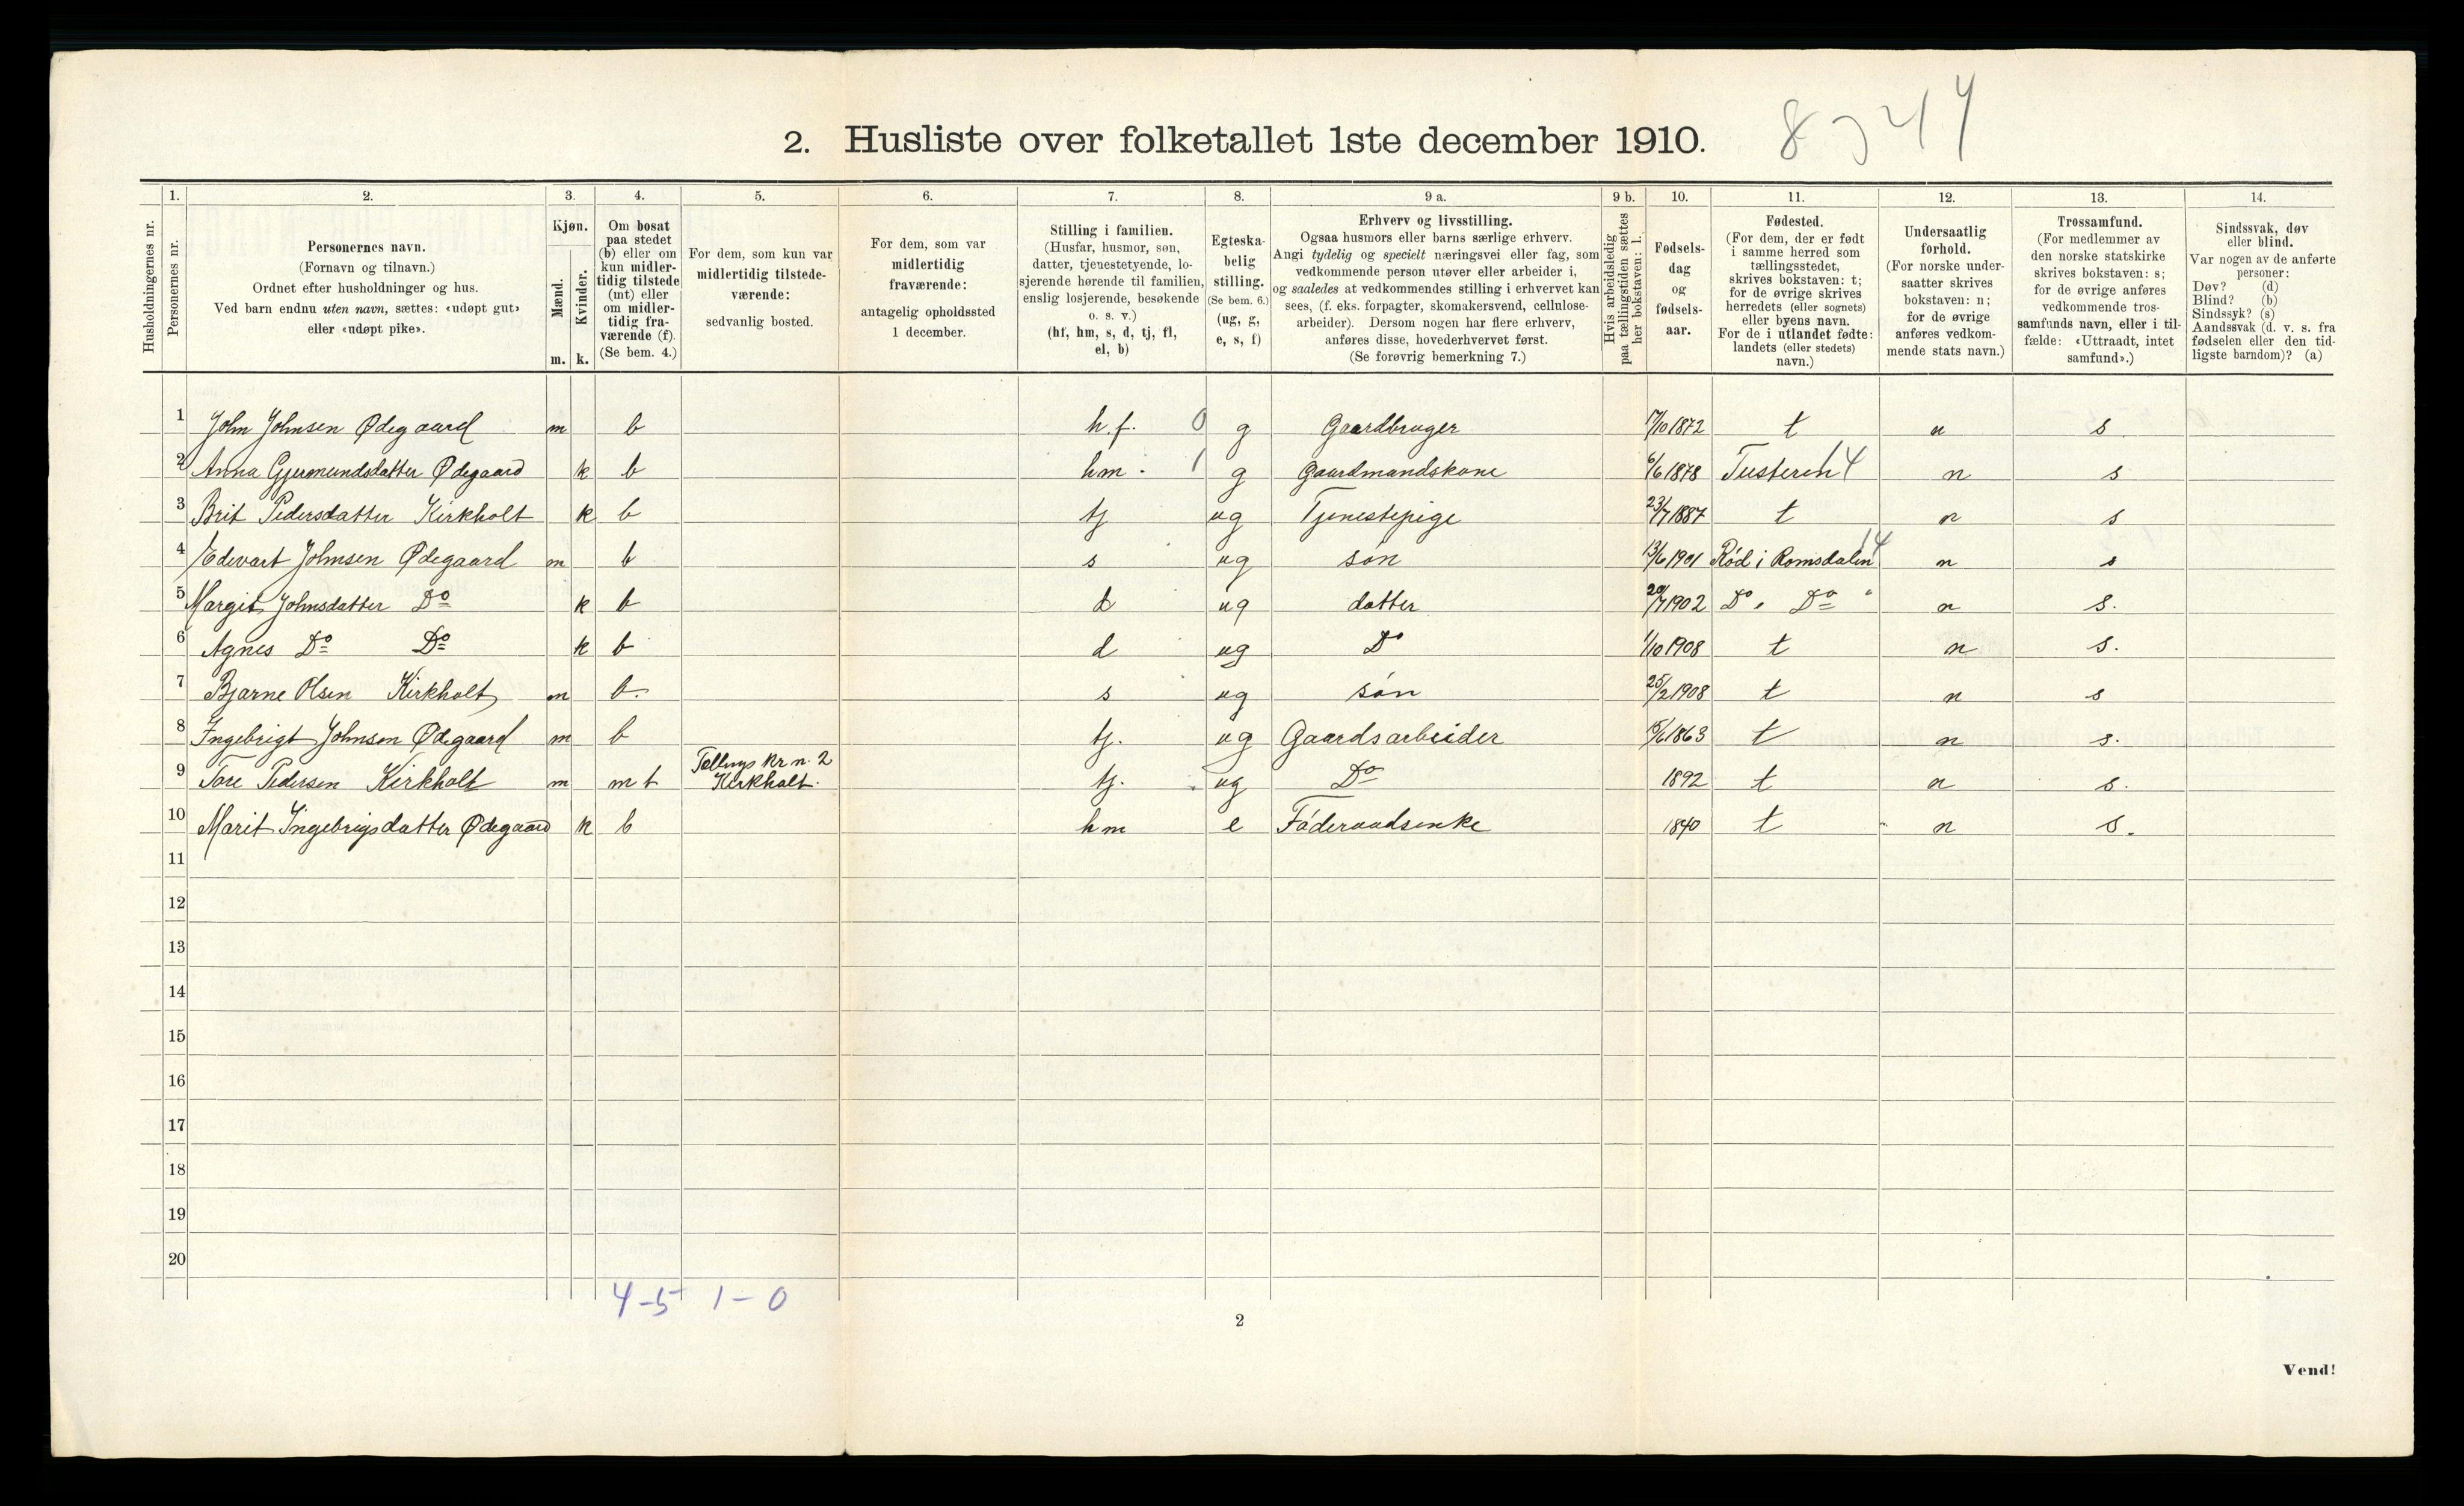 2. Husliste over folketallet 1ste december 1910.
1. 2. 3. 4. 5. 6. 7. 8. 9 a. 9 b. 10. 11. 12. 13. 14.
Husholdningernes nr.
Personernes nr.
Personernes navn.
(Fornavn og tilnavn.)
Ordnet efter husholdninger og hus.
Ved barn endnu uten navn, sættes: «udøpt gut»
eller «udøpt pike».
Kjøn.
Mænd.
Kvinder.
m. k.
Om bosat
paa stedet
(b) eller om
kun midler-
tidig tilstede
(mt) eller
om midler-
tidig fra-
værende (f).
(Se bem. 4.)
For dem, som kun var
midlertidig tilstede-
værende:
sedvanlig bosted.
For dem, som var
midlertidig
fraværende:
antagelig opholdssted
1 december.
Stilling i familien.
(Husfar, husmor, søn,
datter, tjenestetyende, lo-
sjerende hørende til familien,
enslig losjerende, besøkende
o. s. v.)
(hf, hm, s, d, tj, fl,
el, b)
Egteska-
belig
stilling.
(Se bem. 6.)
(ug, g,
e, s, f)
Erhverv og livsstilling.
Ogsaa husmors eller barns særlige erhverv.
Angi tydelig og specielt næringsvei eller fag, som
vedkommende person utøver eller arbeider i,
og saaledes at vedkommendes stilling i erhvervet kan
sees, (f. eks. forpagter, skomakersvend, cellulose-
arbeider). Dersom nogen har flere erhverv,
anføres disse, hovederhvervet først.
(Se forøvrig bemerkning 7.)
Hvis arbeidsledig
paa tællingstiden sættes
her bokstaven: l.
Fødsels-
dag
og
fødsels-
aar.
Fødested.
(For dem, der er født
i samme herred som
tællingsstedet,
skrives bokstaven: t;
for de øvrige skrives
herredets (eller sognets)
eller byens navn.
For de i utlandet fødte:
landets (eller stedets)
navn.)
Undersaatlig
forhold.
(For norske under-
saatter skrives
bokstaven: n;
for de øvrige
anføres vedkom-
mende stats navn.)
Trossamfund.
(For medlemmer av
den norske statskirke
skrives bokstaven: s;
for de øvrige anføres
vedkommende tros-
samfunds navn, eller i til-
fælde: «Uttraadt, intet
samfund».)
Sindssvak, døv
eller blind.
Var nogen av de anførte
personer:
Døv? (d)
Blind? (b)
Sindssyk? (s)
Aandssvak (d. v. s. fra
fødselen eller den tid-
ligste barndom)? (a)
1 John Johnsen Ødegaard m b h.f. 0 g Gaardbruger 17/10 1872 t n s
2 Anna Gjermundsdatter Ødegaard k b hm. 1 g Gaardmandskone 6/6 1878 Tusteren 14 n s
3 Brit Pedersdatter Kirkholt k b tj ug Tjenestepige 23/7 1887 t n s
4 Edevart Johnsen Ødegaard m b s ug søn 13/6 1901 Rød i Romsdalen 14 n s
5 Margit Johnsdatter Do k b d ug datter 20/7 1902 Do " Do " n s.
6 Agnes Do Do k b d ug Do 1/10 1908 t n s.
7 Bjarne Olsen Kirkholt m b. s ug søn 25/2 1908 t n s
8 Ingebrigt Johnsen Ødegaard m b tj. ug Gaardsarbeider 15/6 1863 t n s.
9 Tore Pedersen Kirkholt m mt Tellings kr n. 2 Kirkholt. tj. ug Do 1892 t n s.
10 Marit Ingebrigsdatter Ødegaard k b hm e Føderaadsenke 1840 t n s.
11
12
13
14
15
16
17
18
19
20
4-5 1-0
2
Vend!